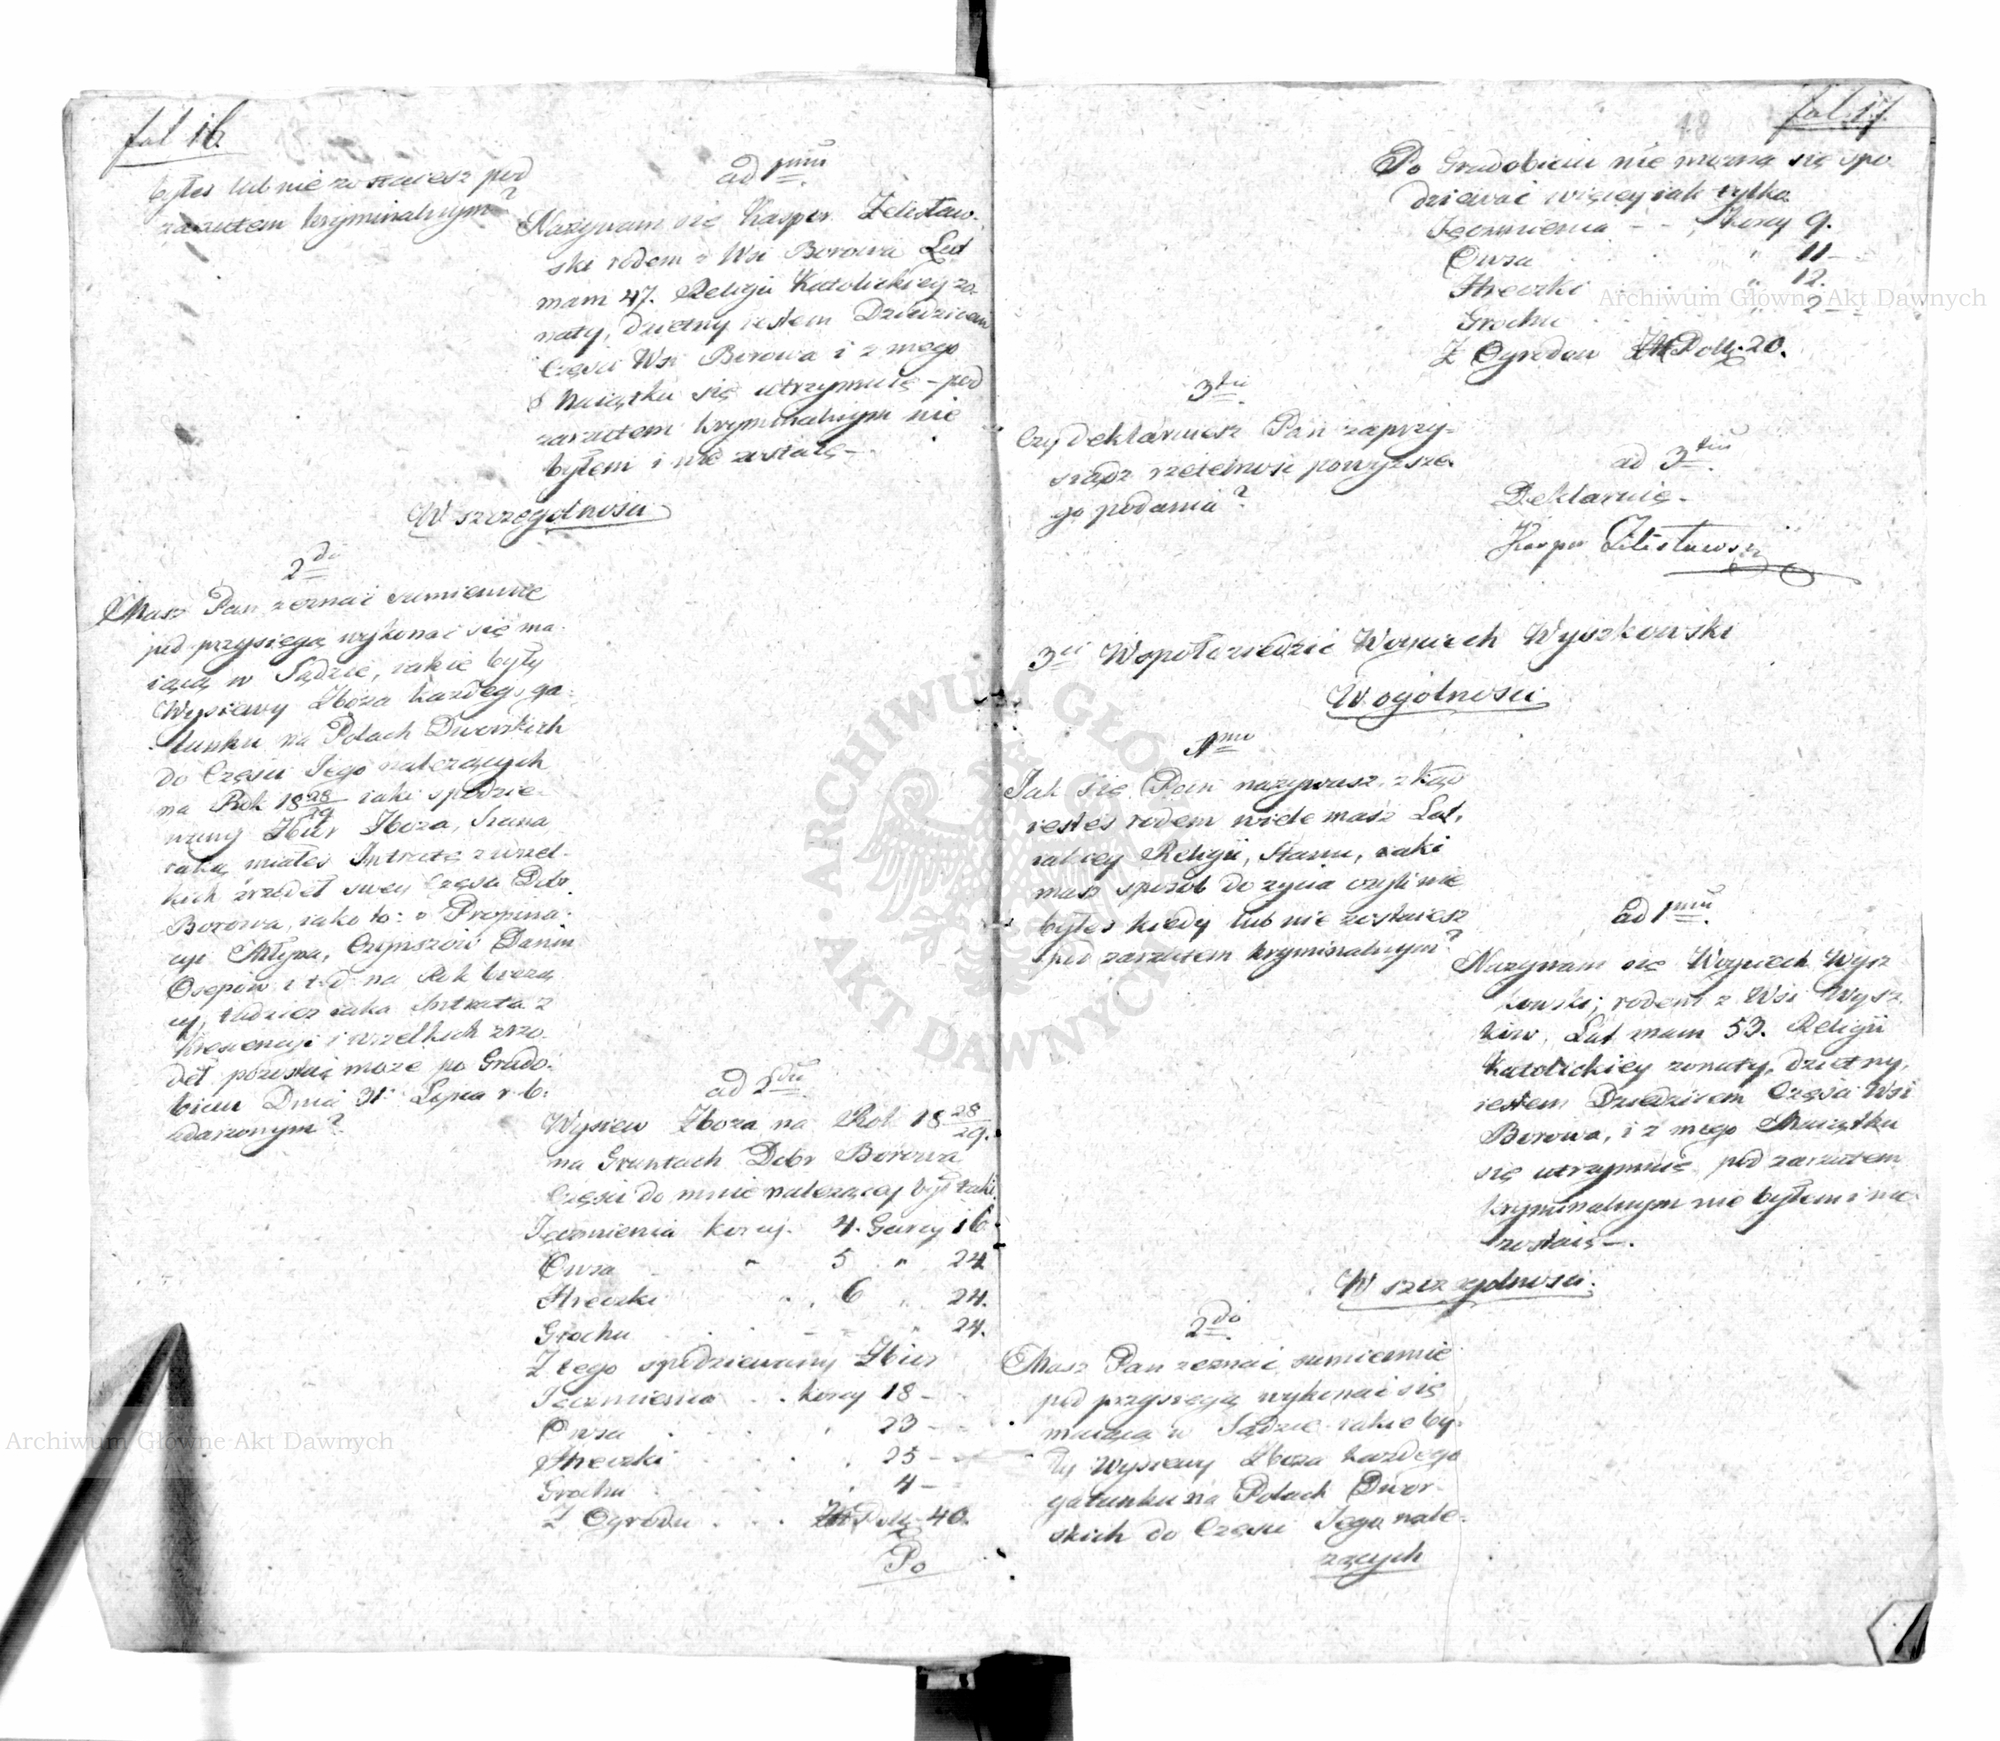 fol 16.
byłeś lub nie zostaiesz pod
zarzutem kryminalnym?
ad 1mum
Nazywam się Kasper Zelistaw-
ski rodem z Wsi Borowa Lat
mam 47. Religii Katolickiey żo-
naty, dzietny iestem Dziedzicem
Części Wsi Borowa i z mego
Maiątku się utrzymuię – pod
zarzutem kryminalnym nie
byłem i nie zostaię –
W szczególności
2do
Masz Pan zeznać sumiennie
pod przysięgą wykonać się ma-
iącą w Sądzie, iakie były
Wysiewy Zboża każdego ga-
tunku na Polach Dworskich
do Części Jego należących
na Rok 1828/29 iaki spodzie-
wany Zbiór Zboża, Siana
iaką miałeś Intratę z wszel-
kich źrzódeł swey Części Dóbr
Borowa, iako to: z Propina-
cyi Młyna, Czynszów Danin
Osepów i t.d. na Rok bieżą
cy, tudzież iaka Intrata z
Krescencyi i wszelkich źrzó-
deł pozostać może po Grado-
biciu Dnia 31 Lipca r. b.
zdarzonym?
ad 2dum
Wysiew Zboża na Rok 1828/29.
na Gruntach Dóbr Borowa
Części do mnie należącey był taki
Jęczmienia korcy. 4. Garcy 16.
Owsa " 5 " 24
Hreczki " 6 " 24.
Grochu - - " 24.
Z tego spodziewany Zbiór
Jęczmienia . . korcy 18 –
Owsa . . . " 23 –
Hreczki . . . " 25 –
Grochu . . . " 4 –
Z Ogrodu . . . Poll. 40.
Po
fol. 17.
48
Po Gradobiciu nie można się spo
dziewać więcey iak tylko
Jęczmienia - - Korcy 9.
Owsa . . " 11 –
Hreczki . . " 12.
Grochu . . " 2 –
Z Ogrodów Poll. 20.
3tio
Czy deklaruiesz Pan zaprzy-
siądz rzetelność powyższe-
go podania?
ad 3tium
Deklaruię.
Kasper Zelistawski
3ci Współdziedzic Woyciech Wyszkowski
W ogólności
1mo
Jak się Pan nazywasz, zkąd
iesteś rodem wiele masz Lat,
iakiey Religii, Stanu, iaki
masz sposób do życia czyli nie
byłeś kiedy lub nie zostaiesz
pod zarzutem kryminalnym?
ad 1mum
Nazywam się Woyciech Wysz
kowski, rodem z Wsi Wysz
ków, Lat mam 53. Religii
Katolickiey żonaty, dzietny,
iestem Dziedzicem Części Wsi
Borowa, i z mego Maiątku
się utrzymuię, pod zarzutem
kryminalnym nie byłem i nie
zostaię –.
W szczególności.
2do
Masz Pan zeznać sumiennie
pod przysięgą wykonać się
maiącą w Sądzie iakie by-
ły Wysiewy Zboża każdego
gatunku na Polach Dwor-
skich do Części Jego nale-
żących
Archiwum Główne Akt Dawnych
Archiwum Główne Akt Dawnych
ARCHIWUM GŁÓWNE AKT DAWNYCH